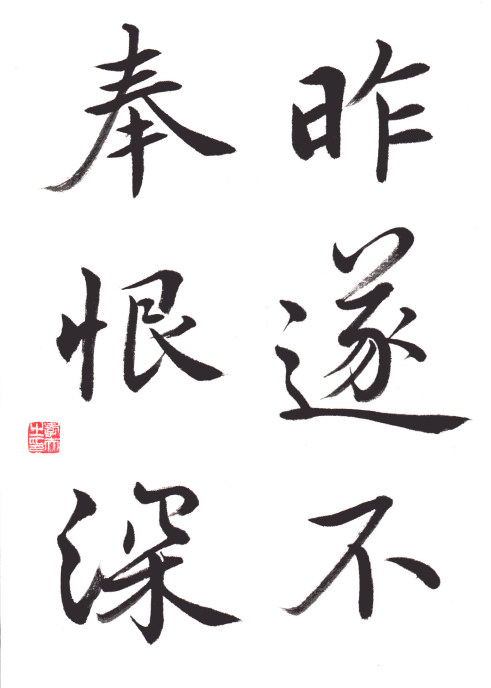 昨遂不
奉恨深